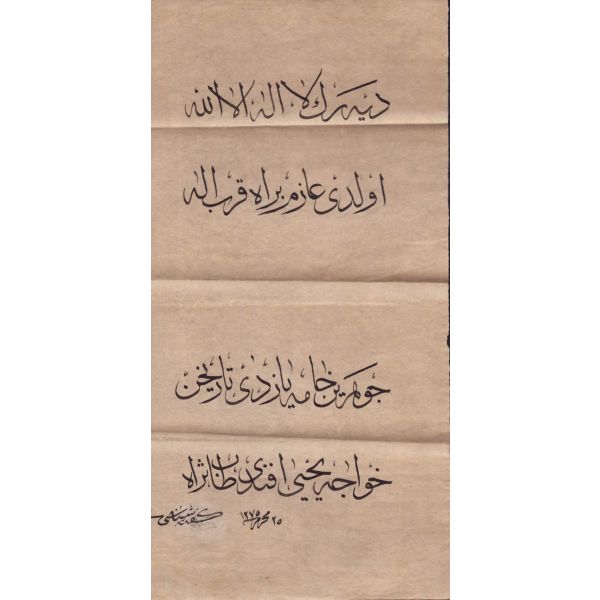 دیه رك لا اله الا الله
اولدی عازم براه قرب اله
جوهرین خامه یازدی تاریخن
خواجه یحیی افندی طاب ثراه
٢٥ محرم ١٢٧٥